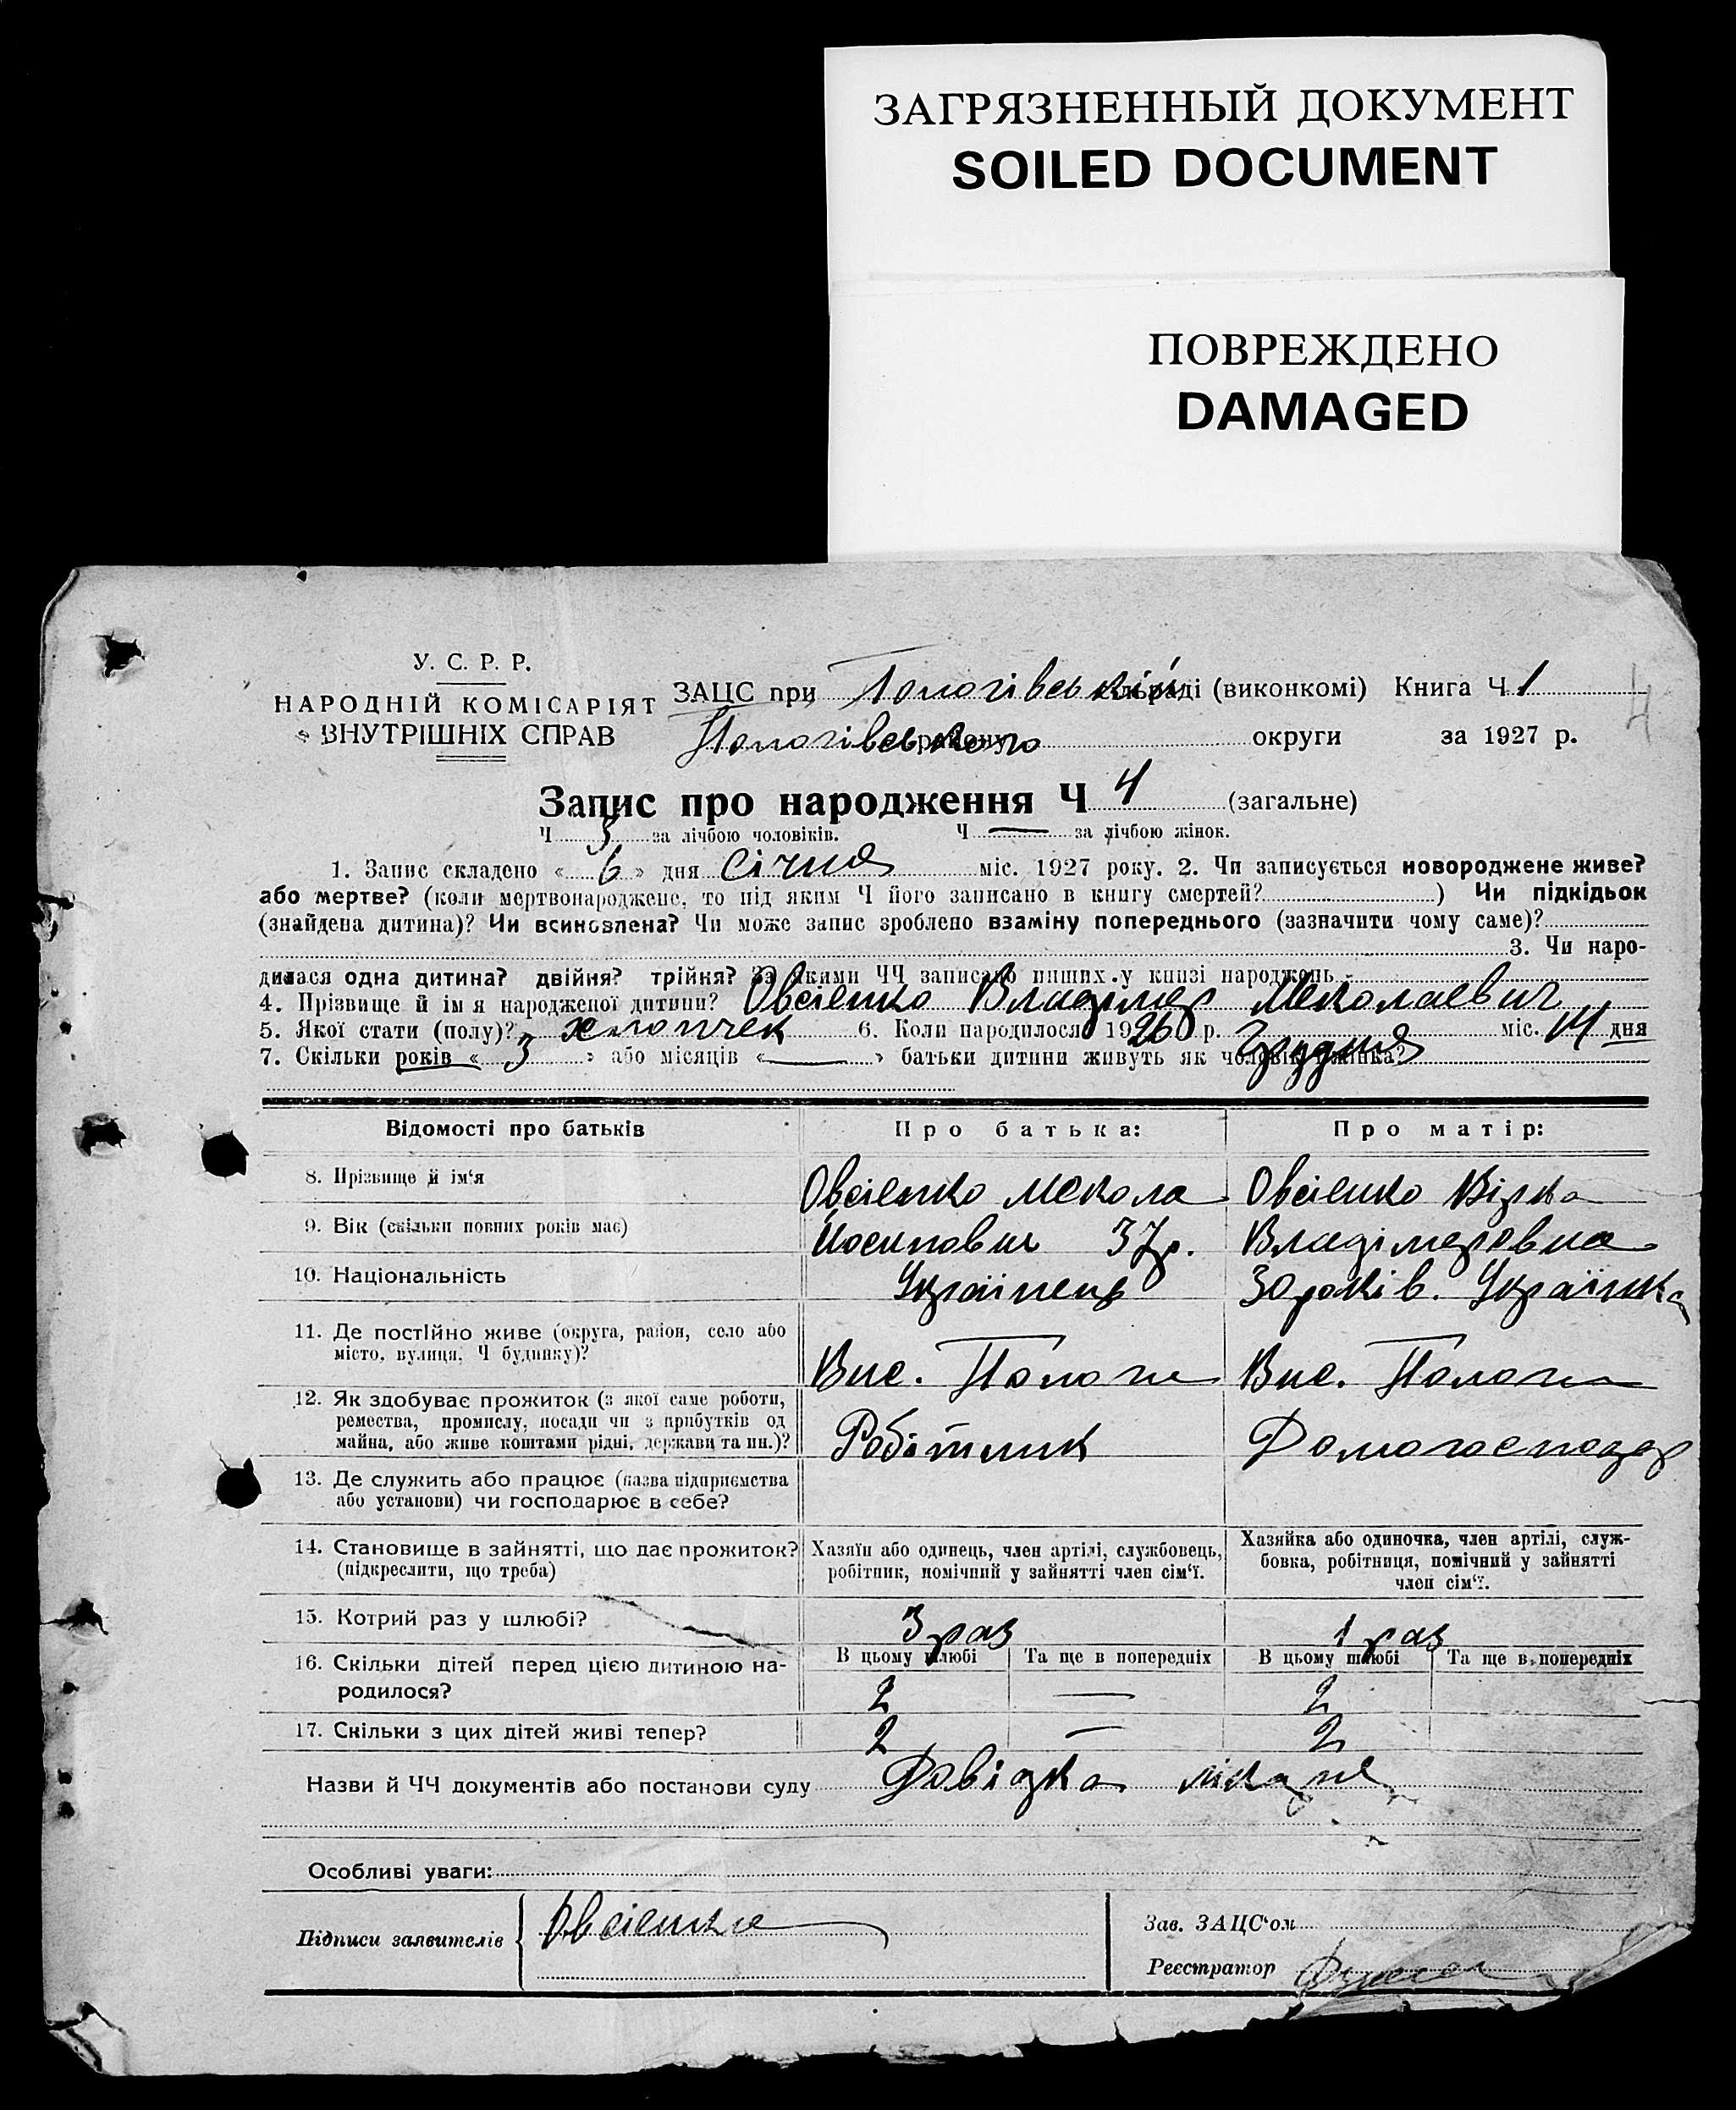 ЗАГРЯЗНЕННЫЙ ДОКУМЕНТ
SOILED DOCUMENT
ПОВРЕЖДЕНО
DAMAGED
4
У. С. Р. Р.
НАРОДНІЙ КОМІСАРІЯТ
ВНУТРІШНІХ СПРАВ
ЗАЦС при Пологівській сільраді (виконкомі) Книга Ч 1
Пологівського району округи за 1927 р.
Запис про народження Ч 4 (загальне)
Ч 3 за лічбою чоловіків. Ч — за лічбою жінок.
1. Запис складено « 6 » дня Січня міс. 1927 року. 2. Чи записується новороджене живе?
або мертве? (коли мертвонароджене, то під яким Ч його записано в книгу смертей? ) Чи підкідьок
(знайдена дитина)? Чи всиновлена? Чи може запис зроблено взаміну попереднього (зазначити чому саме)?
3. Чи наро-
дилася одна дитина? двійня? трійня? За якими ЧЧ записано инших у книзі народжень
4. Прізвище й ім я народженої дитини? Овсіенко Владімер Меколаевич
5. Якої стати (полу)? хлопчек 6. Коли народилося 1926 р. Грудня міс. 14 дня
7. Скільки років « 3 » або місяців «—» батьки дитини живуть як чоловік і жінка?
Відомості про батьків Про батька: Про матір:
8. Прізвище й ім'я Овсіенко Мекола Овсіенко Вірка
9. Вік (скільки повних років має) Йосипович 37р. Владімеровна
10. Національність Українець 30 років. Українка
11. Де постійно живе (округа, район, село або
місто, вулиця, Ч будинку)? Вис. Пологи Вис. Пологи
12. Як здобуває прожиток (з якої саме роботи,
ремества, промислу, посади чи з прибутків од
майна, або живе коштами рідні, держави та ин.)? Робітник Домогосподар
13. Де служить або працює (назва підприємства
або установи) чи господарює в себе?
14. Становище в зайнятті, що дає прожиток?
(підкреслити, що треба)
Хазяїн або одинець, член артілі, службовець,
робітник, помічний у зайнятті член сім'ї.
Хазяйка або одиночка, член артілі, служ-
бовка, робітниця, помічний у зайнятті
член сім'ї.
15. Котрий раз у шлюбі? 3 раз 1 раз
16. Скільки дітей перед цією дитиною на-
родилося?
В цьому шлюбі Та ще в попередніх В цьому шлюбі Та ще в попередніх
2 — 2
17. Скільки з цих дітей живі тепер? 2 — 2
Назви й ЧЧ документів або постанови суду Довідка лікарне
Особливі уваги:
Підписи заявителів Овсіенко
Зав. ЗАЦС'ом
Реєстратор